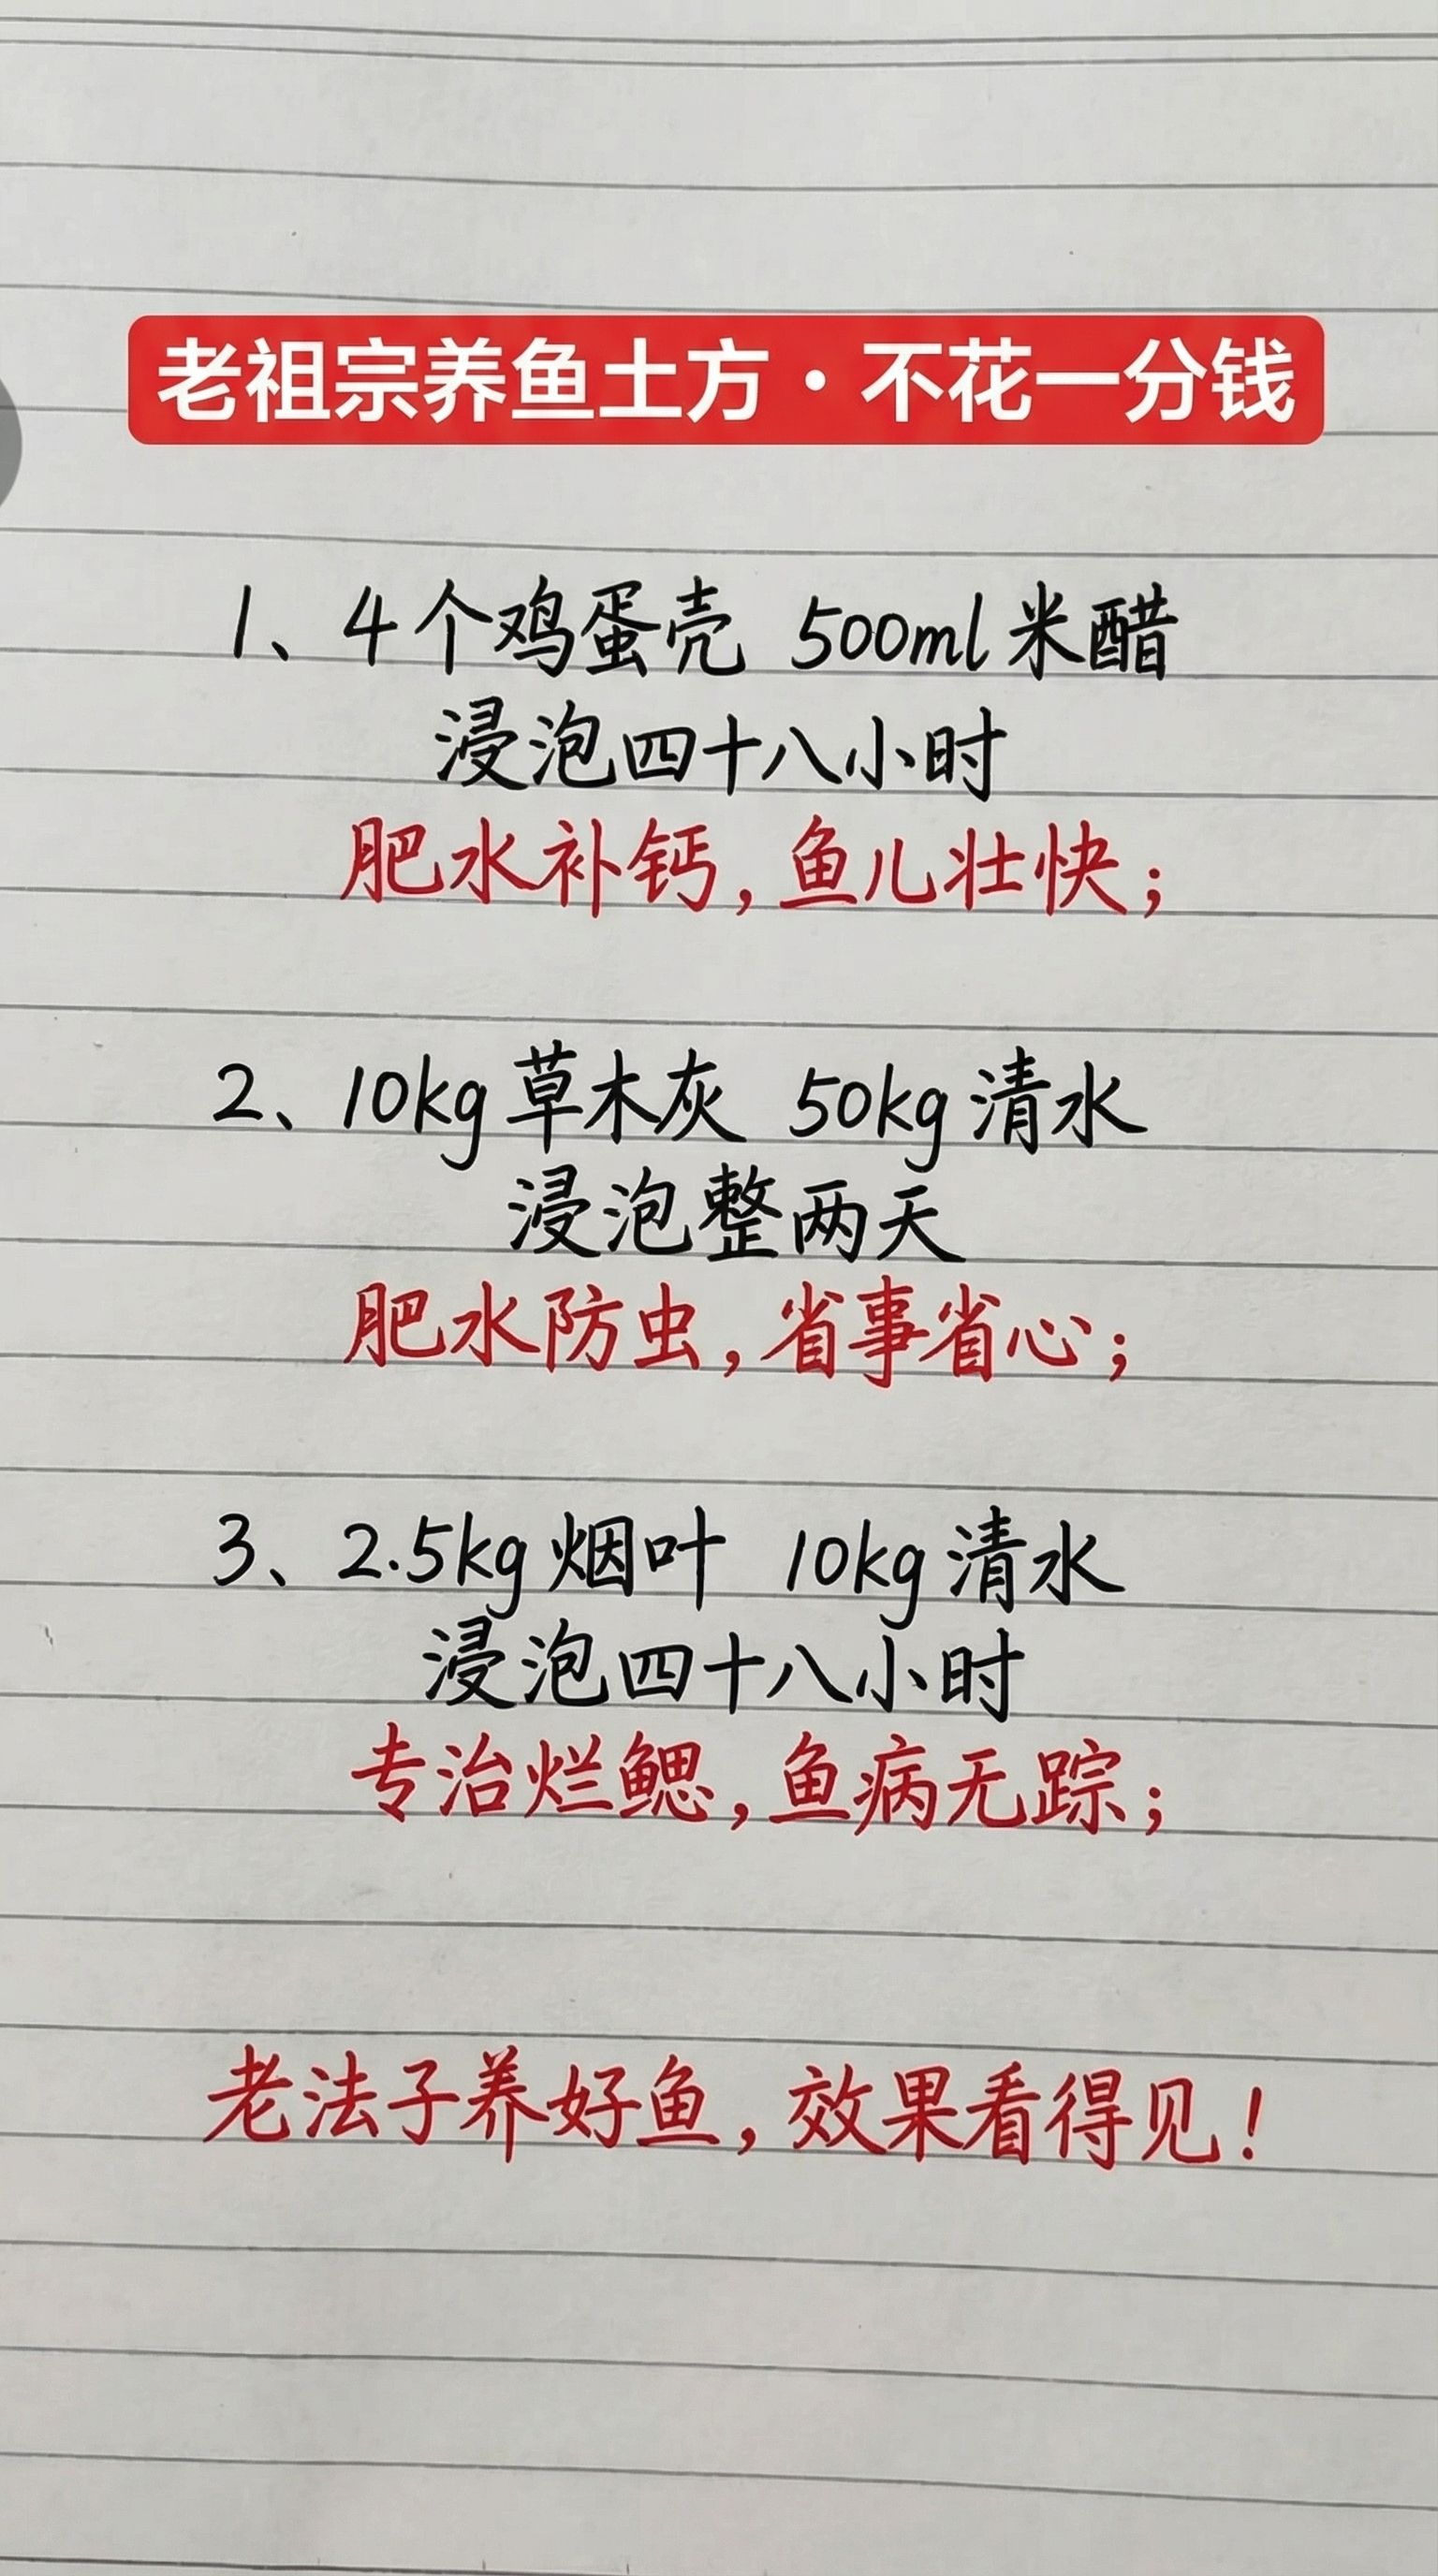 老祖宗养鱼土方·不花一分钱
1、4个鸡蛋壳 500ml米醋
浸泡四十八小时
肥水补钙,鱼儿壮快;
2、10kg草木灰 50kg清水
浸泡整两天
肥水防虫,省事省心;
3、2.5kg烟叶 10kg清水
浸泡四十八小时
专治烂鳃,鱼病无踪;
老法子养好鱼,效果看得见!